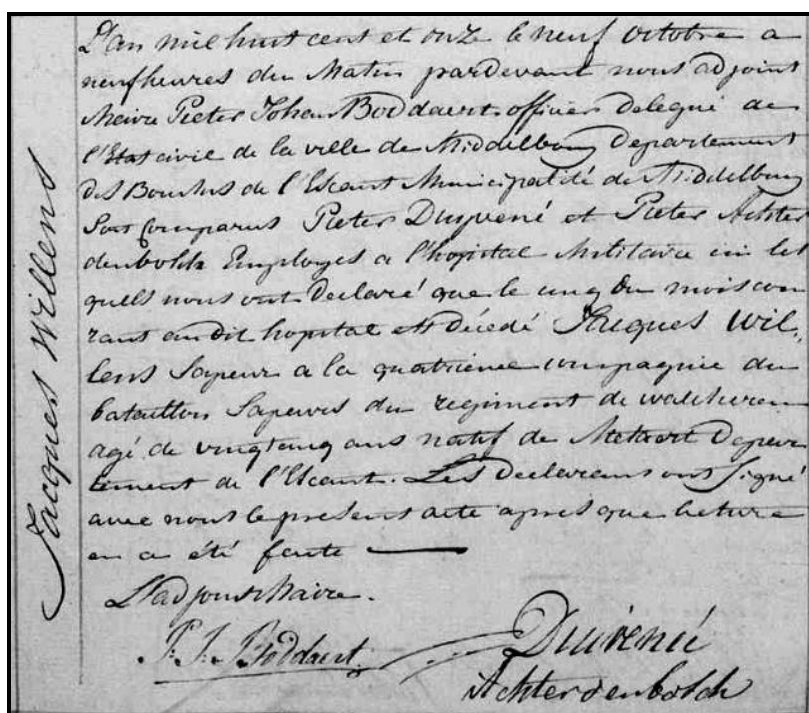 Jacques Willens
L'an mil huit cent et onze le neuf octobre a
neuf heures du Matin pardevant nous adjoint
Maire Pieter Johan Boddaert officier delegué de
l'Etat civile de la ville de Middelbourg Departement
des Bouches de l'Escaut Municipalité de Middelbourg
Sont Comparus Pieter Duivené et Pieter Achter
denbosch Employes a l'hopital Militaire ici les
quels nous ont Declaré que le cinq du mois cou
rant audit hopital est décédé Jacques Wil,,
lens Sapeur a la quatrieme compagnie du
bataillon Sapeurs du regiment de walcheren
agé de vingtcinq ans natif de Depar
tement de l'Escaut. Les Declarans ont Signé
avec nous le present acte apres que lecture
en a été faite
L'adjoint Maire.
P. J. Boddaert
Duivené
Achterdenbosch